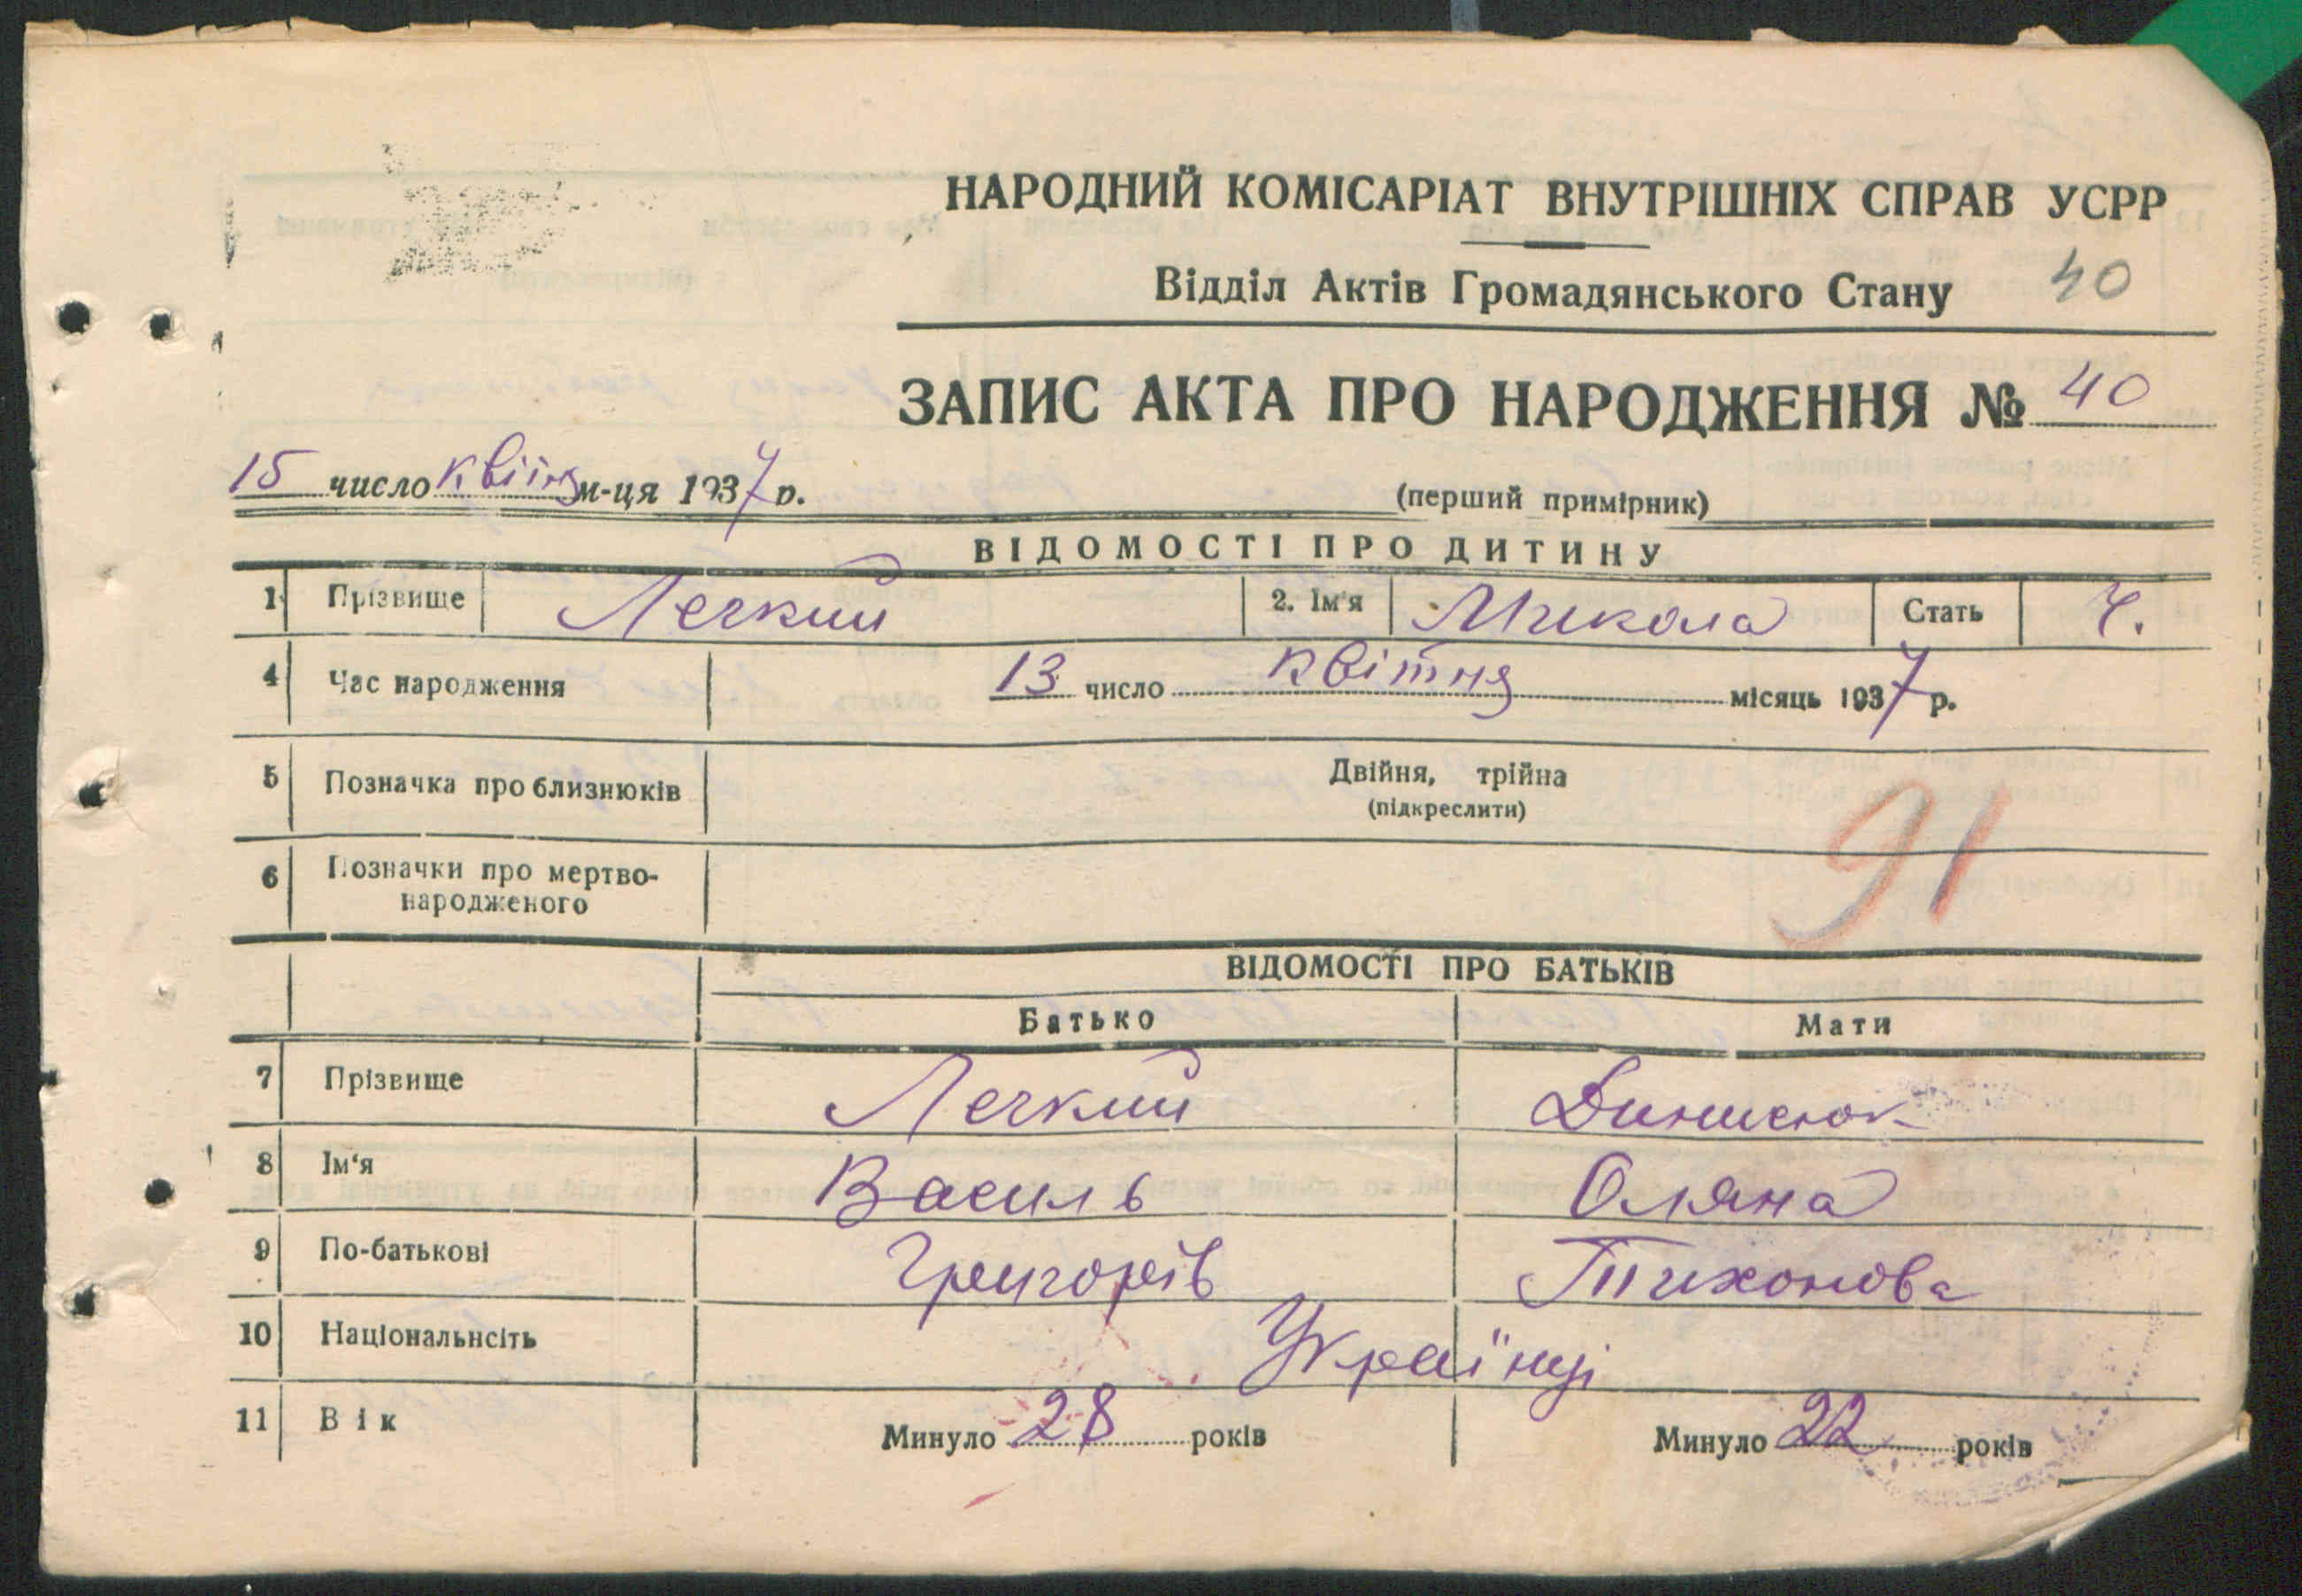 НАРОДНИЙ КОМІСАРІАТ ВНУТРІШНІХ СПРАВ УСРР
Відділ Актів Громадянського Стану 40
ЗАПИС АКТА ПРО НАРОДЖЕННЯ № 40
15 число квітня м-ця 1937 р.
(перший примірник)
ВІДОМОСТІ ПРО ДИТИНУ
1 Прізвище Легкий 2. Ім'я Микола Стать Ч.
4 Час народження 13 число квітня місяць 1937 р.
5 Позначка про близнюків Двійня, трійна
(підкреслити)
91
6 Позначки про мертво-
народженого
ВІДОМОСТІ ПРО БАТЬКІВ
Батько Мати
7 Прізвище Легкий Динисюк
8 Ім'я Василь Оляна
9 По-батькові Григорів Тихонова
10 Національнсіть Українці
11 Вік Минуло 28 років Минуло 22 років